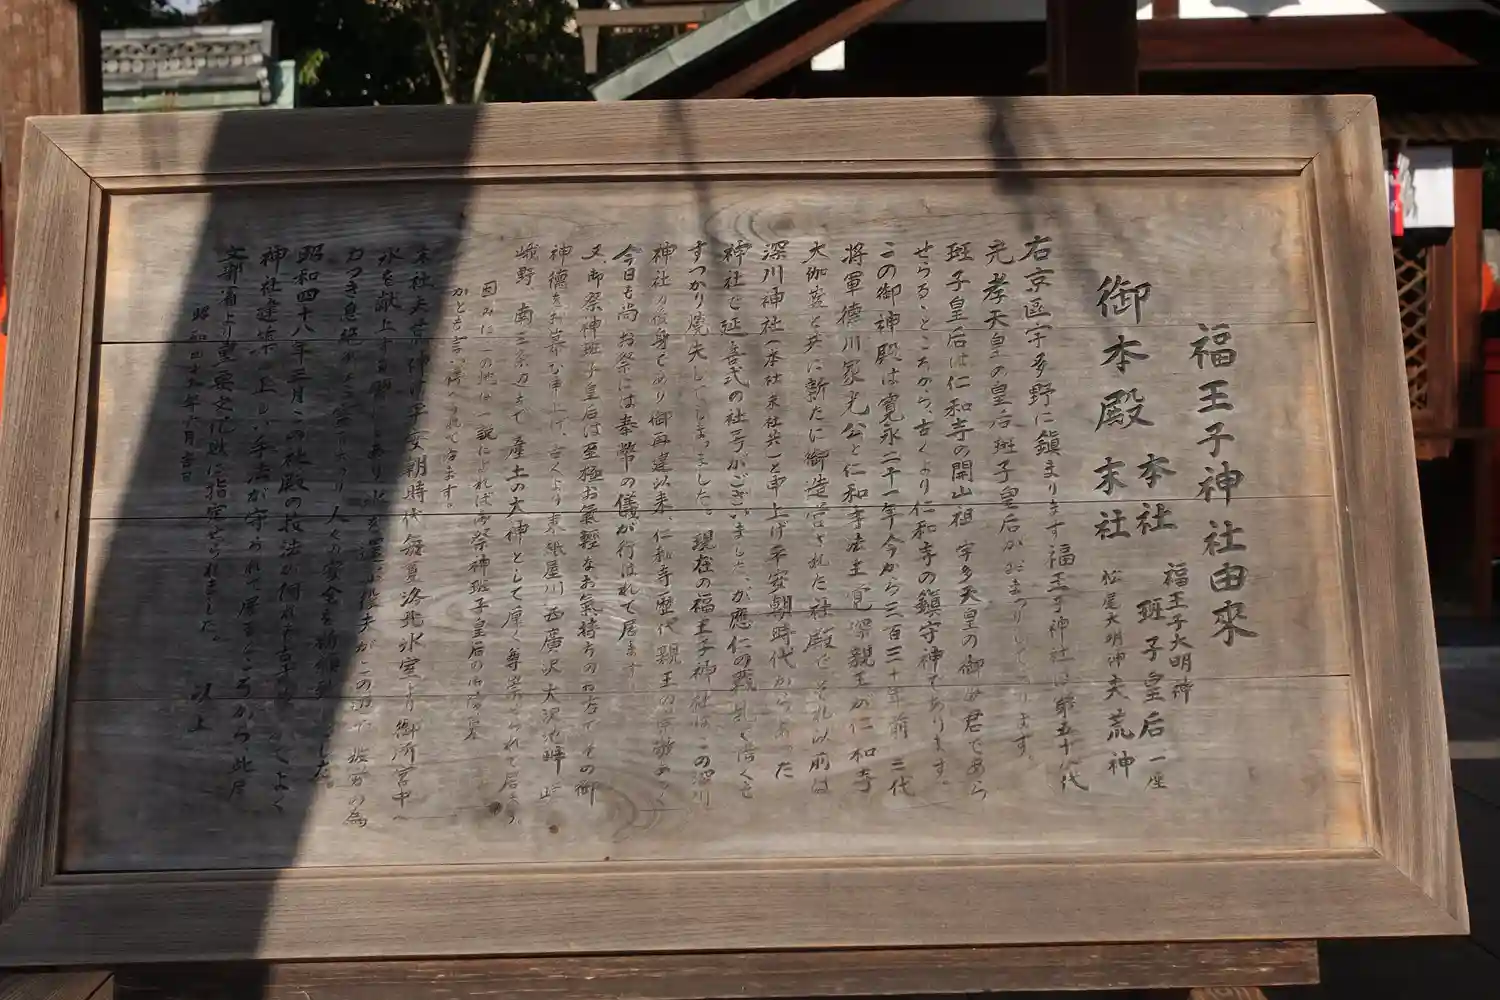 福王子神社由來
御本殿末社
本社
福王子大明神
班子皇后一座
松尾大明神夫荒神
右京區宇多野に鎮まります福王子神社は第五十八代
光孝天皇の皇后班子皇后がおまつりしてあります。
班子皇后は仁和寺の開山祖宇多天皇の御母君であら
せらるゝところから、古くより仁和寺の鎮守神であります。
この御神殿は寛永二十一年今から三百三十年前三代
將軍德川家光公と仁和寺法主覚深親王が仁和寺
大伽藍と共に新たに御造営された社殿でそれ以前は
深川神社(本社末社共)と申上げ平安朝時代からあった
神社で延喜式の社号がございましたが應仁の戰乱で悟くも
すつかり燒失してしまいました。現在の福王子神社はこの深川
神社の後身であり御再建以来、仁和寺歴代親王の崇敬あつく
今日も尚お祭には奉幣の儀が行はれて居ます。
又御祭神班子皇后は至極お氣輕なお氣持ちのお方でその御
神德をお慕ひ申上げ、古くより東紙屋川西廣沢大沢池畔北
嵯野南三条辺まで產土の大神として厚く尊崇られて居ます
因みにこの地は一説によれば御祭神班子皇后の御陵墓
かとも言い傳えられて居ます。
末社夫荒神は平安朝時代毎夏洛北氷室より御所宮中へ
氷を献上する
昭和四十八年三月この社殿の技法が何れも古
神社建築の正しい手法が守られて居るところから、此度
文部省より重要文化財に指定せられました。
昭和四十九年六月吉日
以上